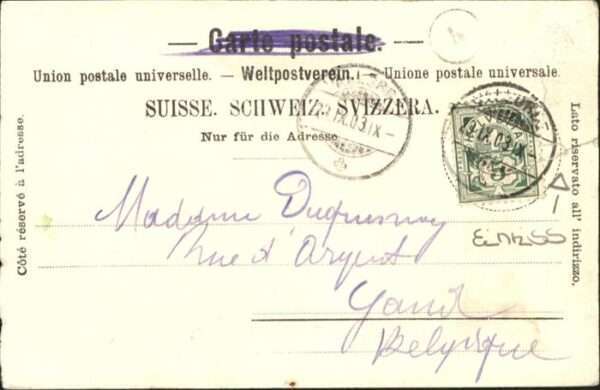 — Carte postale. —
Union postale universelle. — Weltpostverein. — Unione postale universale.
SUISSE. SCHWEIZ. SVIZZERA.
Nur für die Adresse
Côté réservé à l'adresse.
Lato riservato all' indirizzo.
23.IX.03.IX
23.IX.03.IX
5
Madame Duquesnoy
rue d'Argent
Gand
Belgique
EINRISS